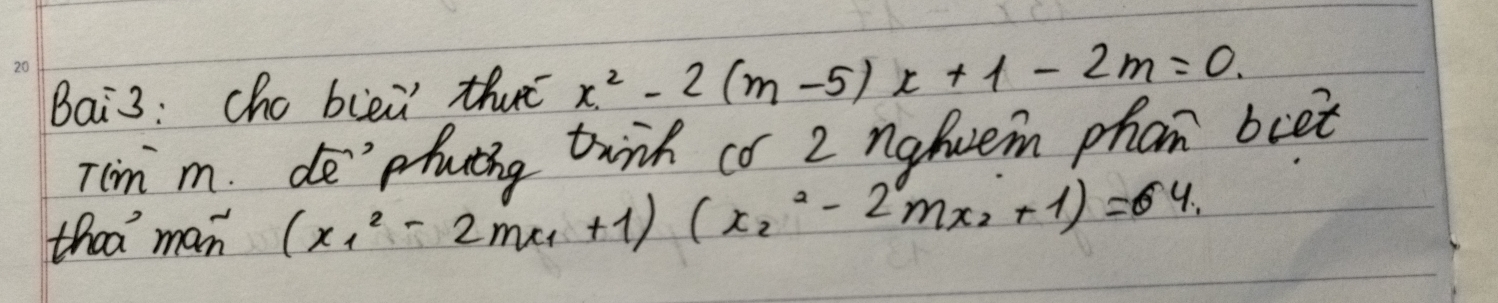 20
Bài 3: Cho biểu thức x² - 2(m-5)x + 1 - 2m = 0.
Tìm m. để phương trình có 2 nghiệm phân biệt
thoả mãn (x₁² - 2mx₁ + 1) (x₂² - 2mx₂ + 1) = 64.